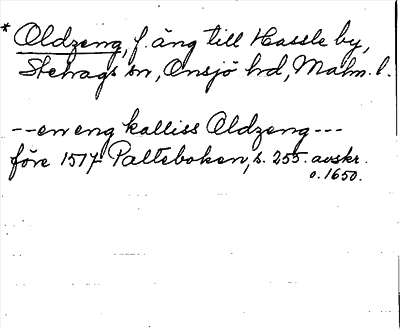 * Oldzeng, f. äng till Hassle by,
Stehags sn, Onsjö hd, Malm. l.
-- en eng kalliss Oldzeng ---
före 1517 Palteboken, s. 255. avskr.
o. 1650.